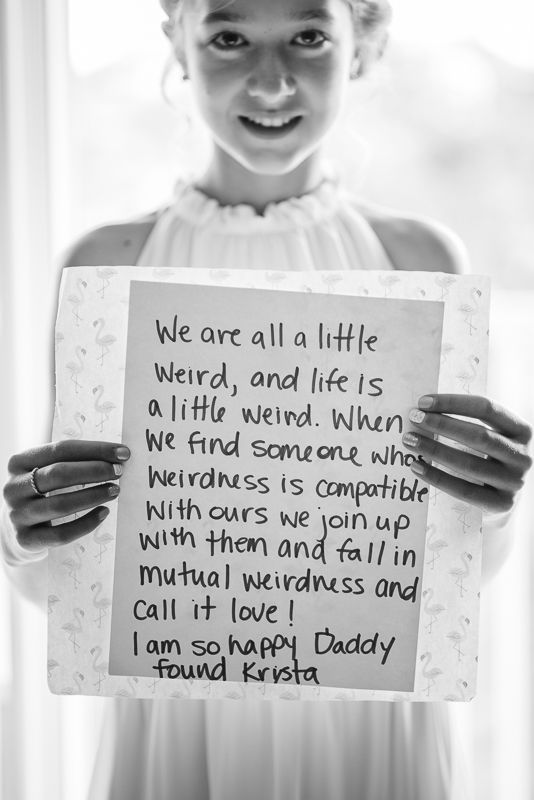 We are all a little
weird, and life is
a little weird. When
we find someone whos
weirdness is compatible
with ours we join up
with them and fall in
mutual weirdness and
call it love!
I am so happy Daddy
found Krista